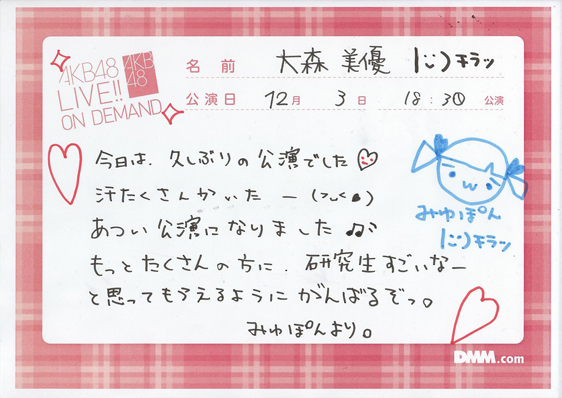 AKB48
LIVE!!
ON DEMAND
AKB
48
名前 大森美優 |ﾆ;)キラッ
公演日 12月 3日 18:30 公演
今日は、久しぶりの公演でした
汗たくさんかいた ー
あつい公演になりました♫
もっとたくさんの方に、研究生すごいなー
と思ってもらえるように がんばるぞっ。
みゆぽんより。
みゆぽん
|ﾆ;)キラッ
DMM.com